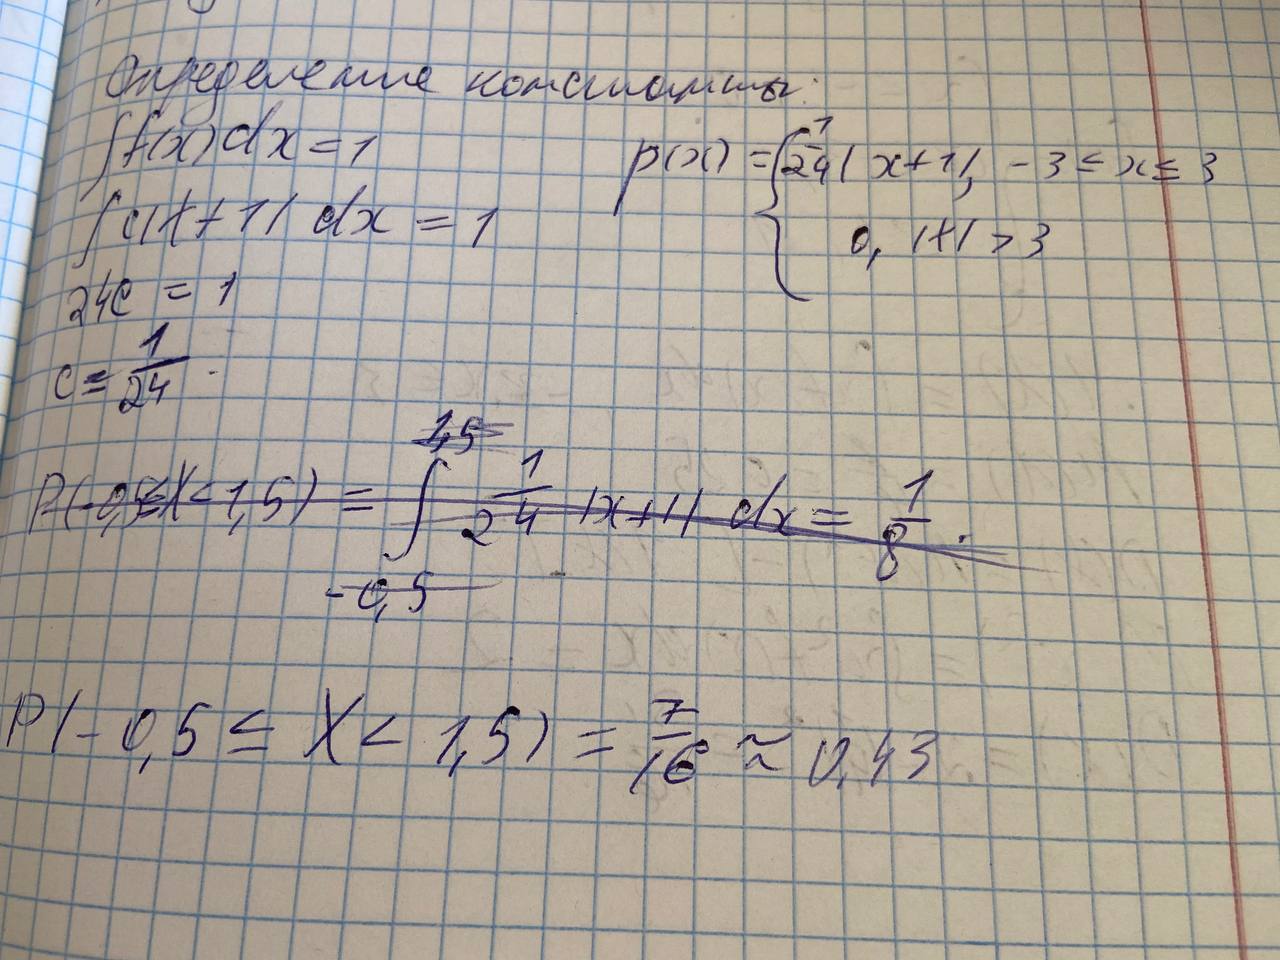 Определение константы:
∫f(x)dx=1
∫c|t+1|dx=1
24c=1
c=1/24.
p(x)={1/24|x+1|, -3≤x≤3
0, |t|>3
P(-0,5≤X<1,5)=∫_{-0,5}^{1,5} 1/24 |x+1| dx=1/8.
P(-0,5≤X<1,5)=7/16≈0,43